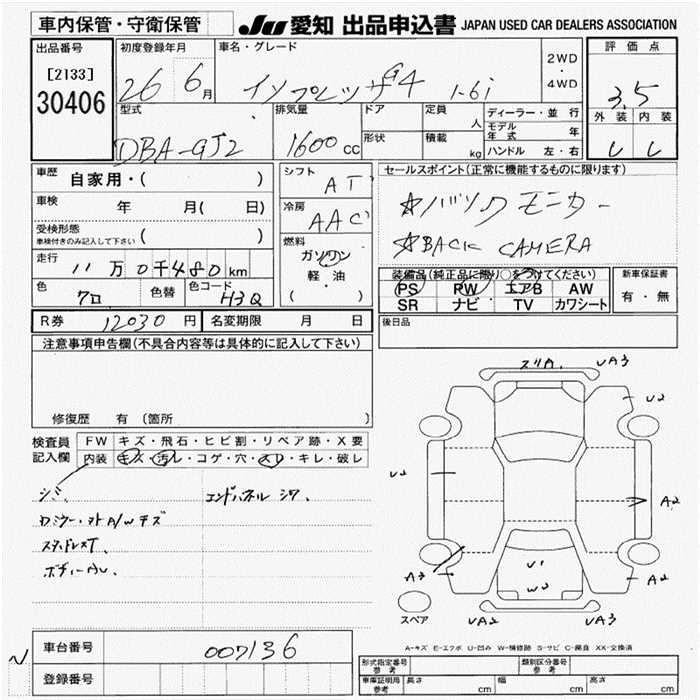 車内保管・守衛保管
JU 愛知 出品申込書 JAPAN USED CAR DEALERS ASSOCIATION
出品番号
[2133]
30406
初度登録年月
26 6月
車名・グレード
インプレッサG4 1.6i
2WD
・
4WD
評価点
3.5
外装 内装
型式
DBA-GJ2
排気量
1600cc
ドア
形状
定員
人
積載
kg
ディーラー・並行
モデル年式 年
ハンドル 左・右
車歴
自家用・( )
車検
年 月( 日)
受検形態
車検付きのみ記入して下さい ( )
走行
11万0千480km
色
クロ
色替
色コード
H3Q
シフト
AT
冷房
AAC
燃料
ガソリン
軽・油
( ・ )
セールスポイント(正常に機能するものに限ります)
☆バックモニター
☆BACK CAMERA
装備品(純正品に限り○をつけてください)
PS PW エアB AW
SR ナビ TV カワシート
新車保証書
有・無
後日品
R券 12030円
名変期限 月 日
注意事項申告欄(不具合内容等は具体的に記入して下さい)
修復歴 有 (箇所 )
検査員
記入欄
FW キズ・飛石・ヒビ割・リペア跡・X要
内装 キズ・汚レ・コゲ・穴・スレ・キレ・破レ
シミ
エンドパネル シワ.
スタッドレスT.
スリA. UA3
U2
U2
A2
A3
A2
U1
W3
UA2
UA3
スペア
A-キズ E-エクボ U-凹み W-補修跡 S-サビ C-腐食 XX-交換済
車台番号
007136
登録番号
型式指定番号
参考
類別区分番号
参考
車庫証明用
参考
長さ cm
幅 cm
高さ cm